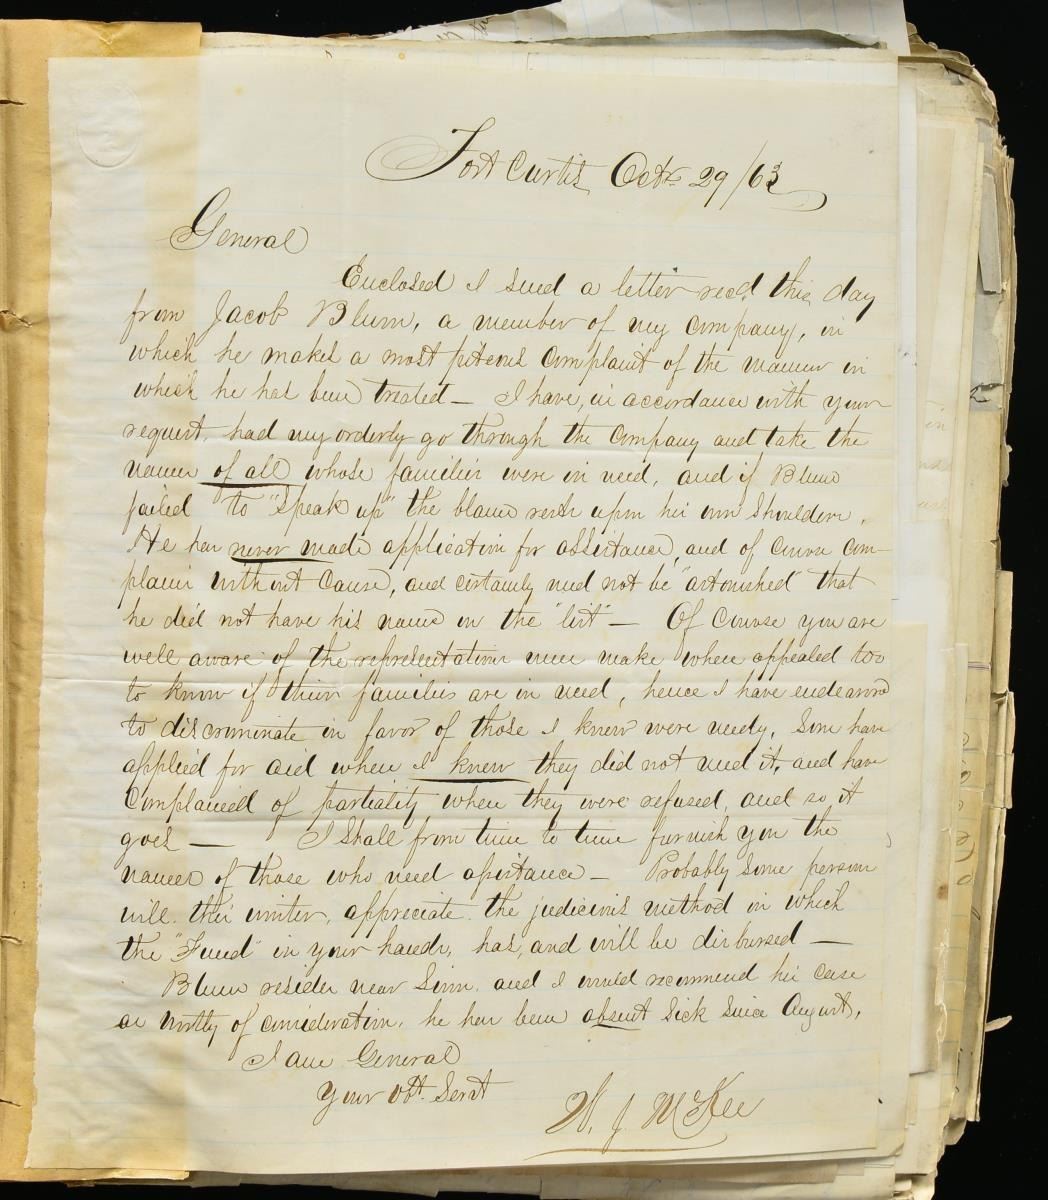 Fort Curtis Octr 29/63
General
Enclosed I send a letter recd this day
from Jacob Blum, a member of my Company, in
which he makes a most piteous complaint of the manner in
which he has been treated — I have, in accordance with your
request, had my orderly go through the Company and take the
names of all whose families were in need, and if Blum
failed to "speak up" the blame rests upon his own shoulders.
He has never made application for assistance, and of course com-
plains without cause, and certainly need not be "astonished" that
he did not have his name on the "list" — Of course you are
well aware of the representations men make when appealed too
to know if their families are in need, hence I have endeavord
to discriminate in favor of those I knew were needy. Some have
applied for aid when I knew they did not need it, and have
complained of partiality when they were refused, and so it
goes — I shall from time to time furnish you the
names of those who need assistance — Probably some persons
will this winter, appreciate the judicious method in which
the "Fund" in your hands, has, and will be disbursed —
Blum resides near and I would recommend his case
as worthy of consideration. he has been absent sick since August,
I am General
Your obt. Servt
W. J. McKee